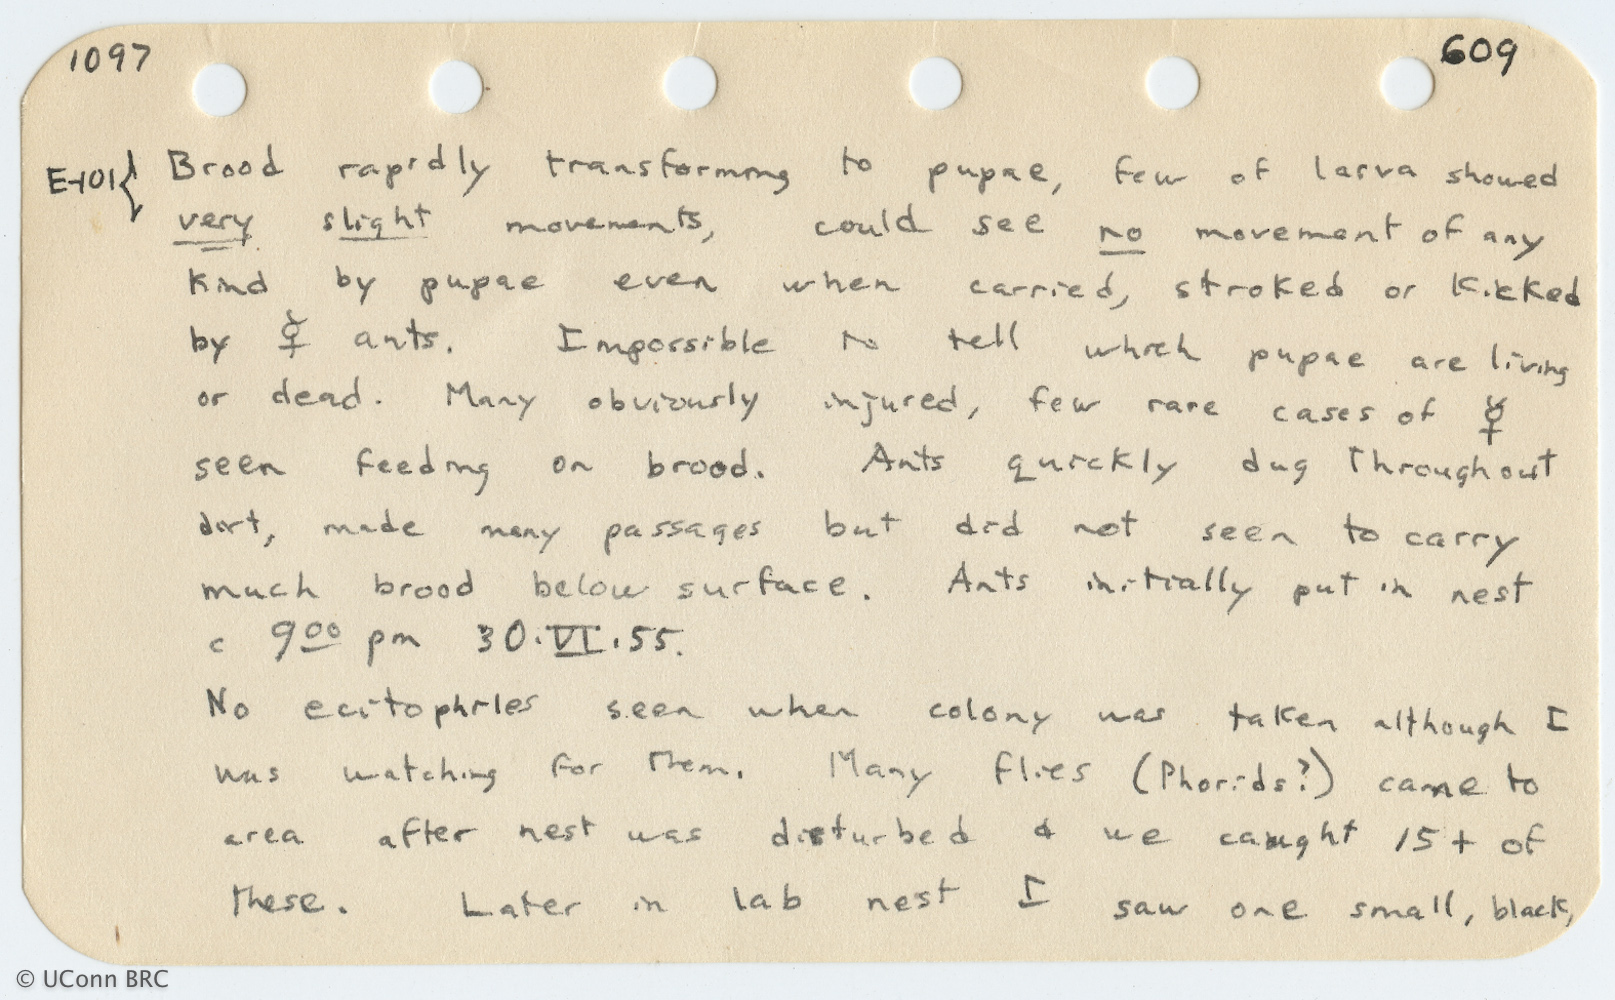 1097 609
E-101{ Brood rapidly transforming to pupae, few of larva showed
very slight movements, could see no movement of any
kind by pupae even when carried, stroked or kicked
by ☿ ants. Impossible to tell which pupae are living
or dead. Many obviously injured, few rare cases of ☿
seen feeding on brood. Ants quickly dug throughout
dirt, made many passages but did not seen to carry
much brood below surface. Ants initially put in nest
c 9⁰⁰ pm 30.VI.55.
No ecitophiles seen when colony was taken although I
was watching for them. Many flies (Phorids?) came to
area after nest was disturbed & we caught 15+ of
these. Later in lab nest I saw one small, black,
© UConn BRC